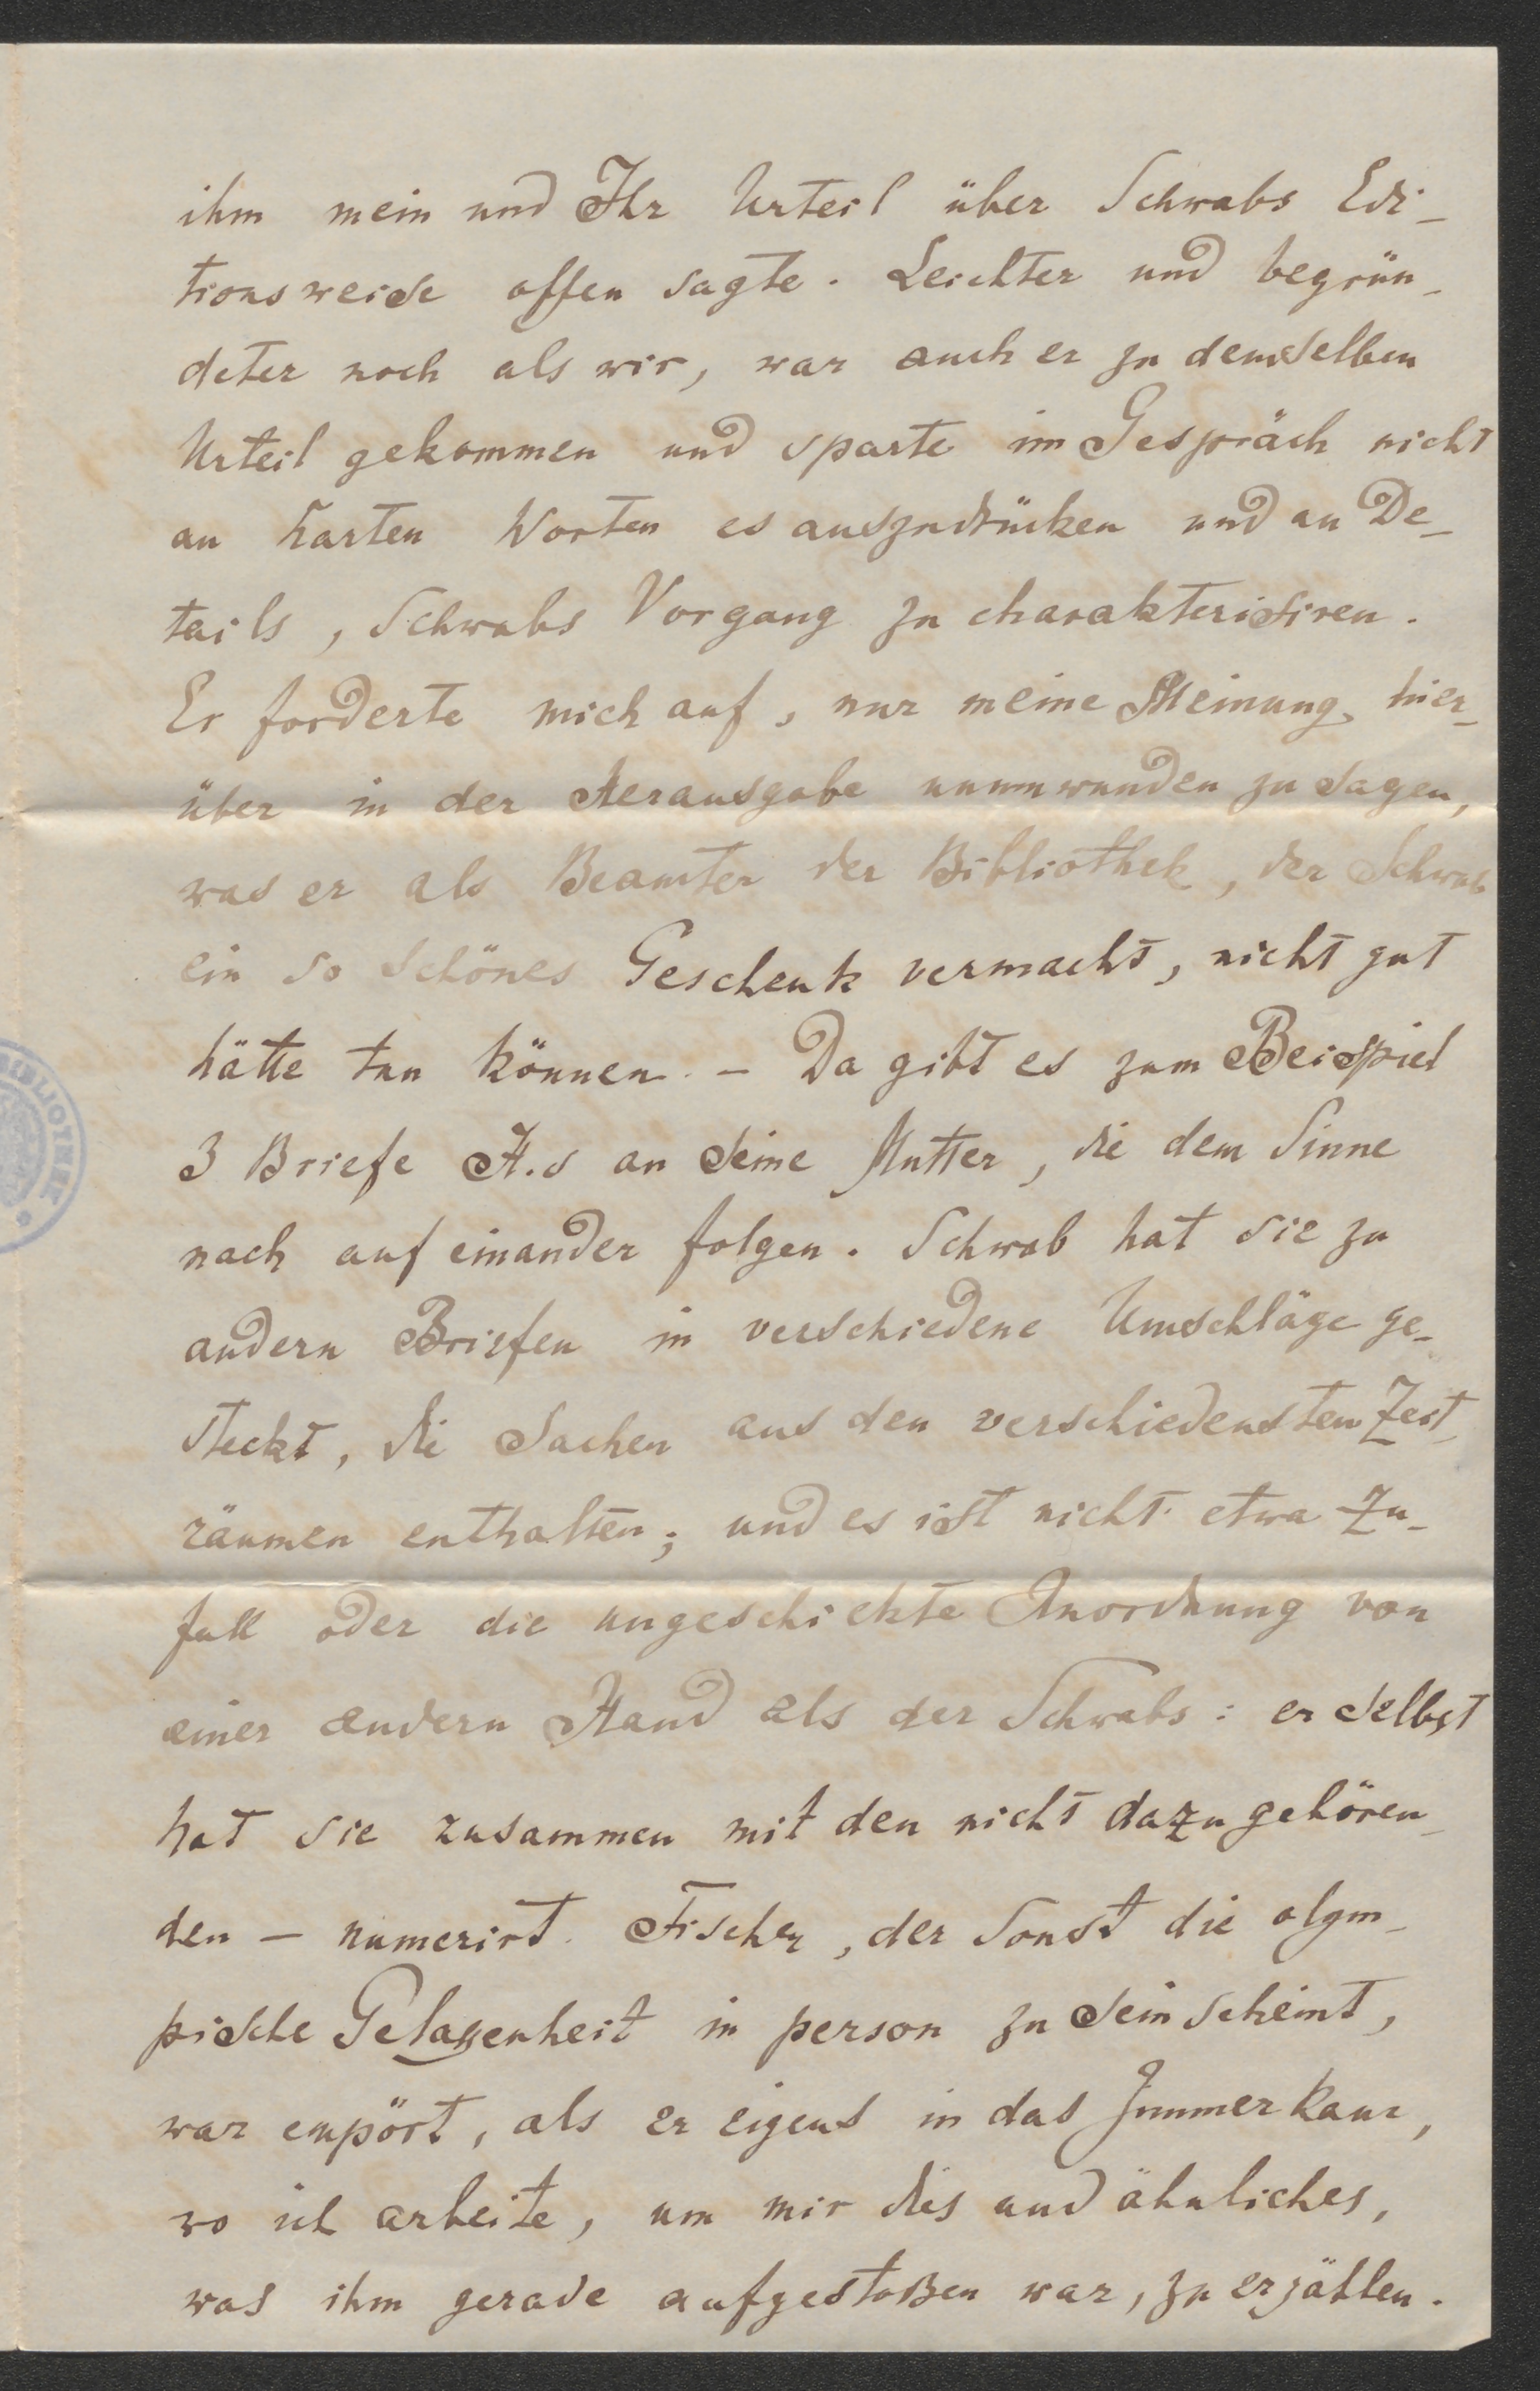 ihm mein und Ihr Urteil über Schwabs Edi-
tionsweise offen sagte. Leichter und begrün-
deter noch als wir, war auch er zu demselben
Urteil gekommen und sparte im Gespräch nicht
an harten Worten es auszudrücken und an De-
tails, Schwabs Vorgang zu charakterisiren.
Er forderte mich auf, nur meine Meinung hier-
über in der Herausgabe unumwunden zu sagen,
was er als Beamter der Bibliothek, der Schwab
ein so schönes Geschenk vermacht, nicht gut
hätte tun können. – Da gibt es zum Beispiel
3 Briefe H.s an seine Mutter, die dem Sinne
nach auf einander folgen. Schwab hat sie zu
andern Briefen in verschiedene Umschläge ge-
steckt, die Sachen aus den verschiedensten Zeit-
räumen enthalten; und es ist nicht etwa Zu-
fall oder die ungeschickte Anordnung von
einer andern Hand als der Schwabs: er selbst
hat sie zusammen mit den nicht dazu gehören-
den – numerirt. Fischer, der sonst die olym-
pische Gelassenheit in person zu sein scheint,
war empört, als er eigens in das Zimmer kam,
wo ich arbeite, um mir dies und ähnliches,
was ihm gerade aufgestoßen war, zu erzählen.
BIBLIOTHEK